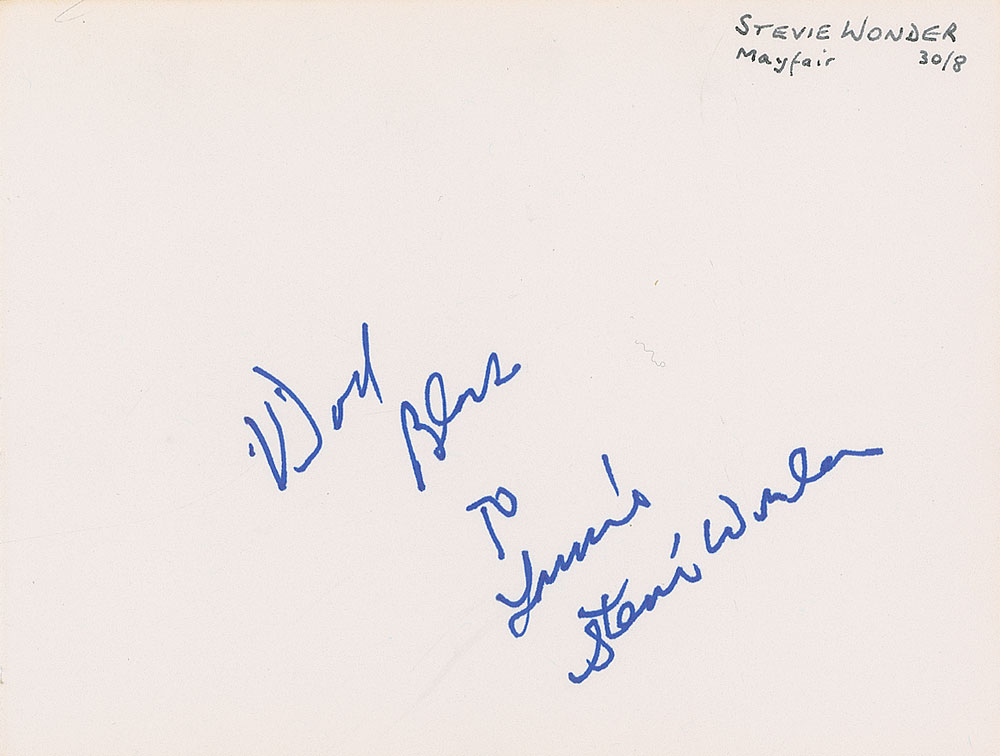 STEVIE WONDER
Mayfair 30/8
God Bless
TO
Stevie Wonder